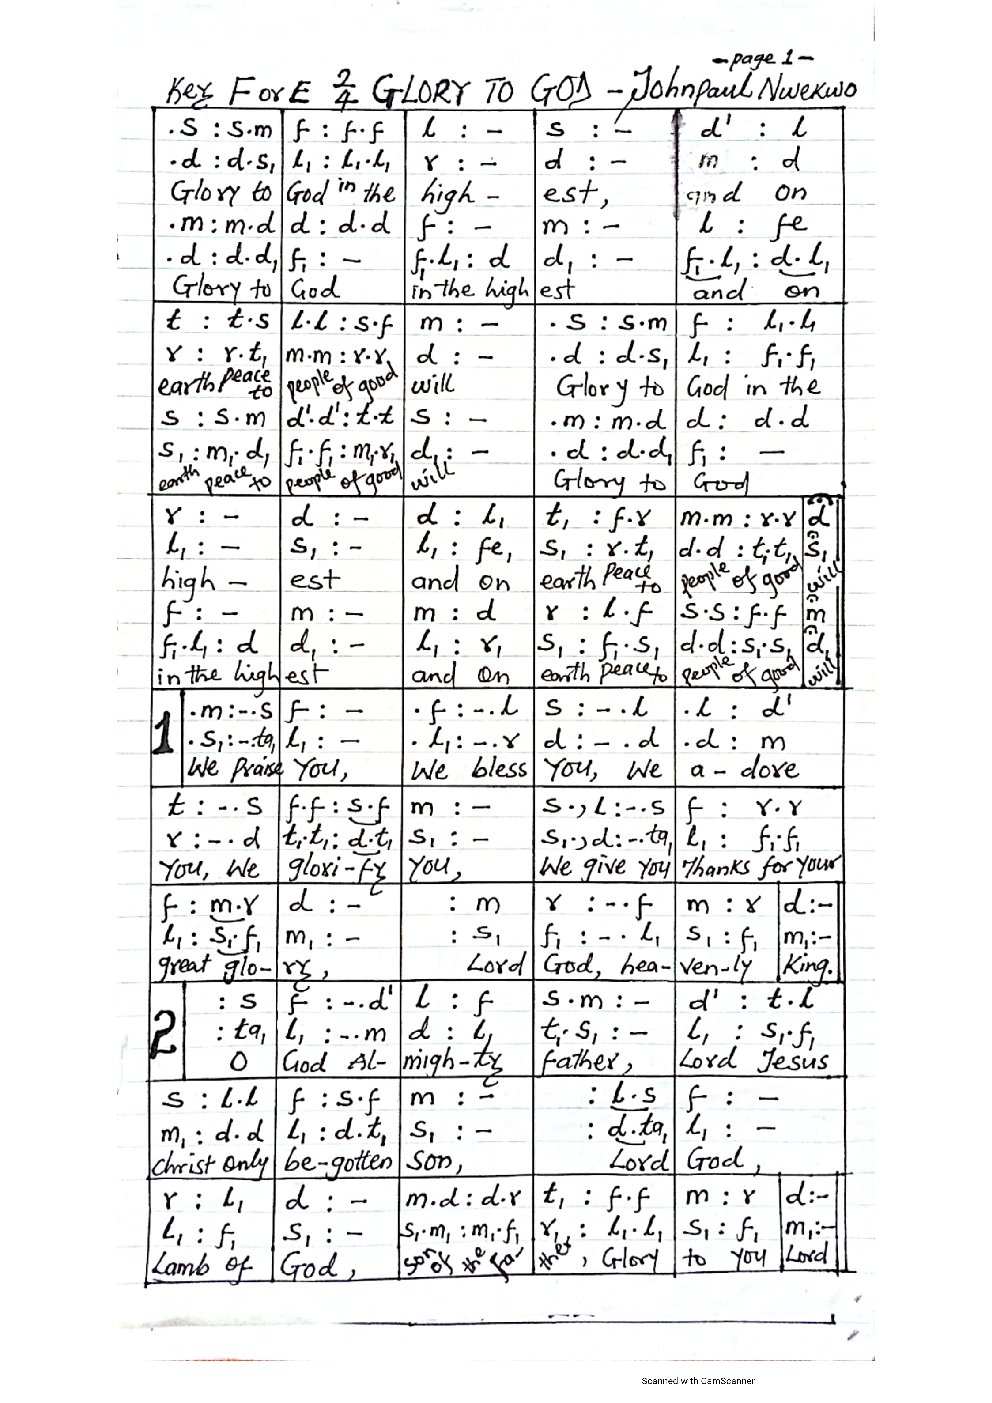 -page 1-
Key F or E 2/4 GLORY TO GOD - Johnpaul Nwekwo
.S : S.m | f : f.f | l : - | s : - | d' : l
.d : d.s, | l₁ : l₁.l₁ | r : - | d : - | m : d
Glory to | God in the | high - | est, | and on
.m : m.d | d : d.d | f : - | m : - | l : fe
.d : d.d, | f₁ : - | f₁.l₁ : d | d₁ : - | f₁.l₁ : d.l₁
Glory to | God | in the high | est | and on
t : t.s | l.l : s.f | m : - | .S : S.m | f : l₁.l₁
r : r.t₁ | m.m : r.r | d : - | .d : d.s₁ | l₁ : f₁.f₁
earth Peace to | people of good | will | Glory to | God in the
s : s.m | d'.d' : t.t | s : - | .m : m.d | d : d.d
s₁ : m₁.d₁ | f₁.f₁ : m₁.r₁ | d₁ : - | .d : d.d₁ | f₁ : -
earth peace to | people of good | will | Glory to | God
r : - | d : - | d : l₁ | t₁ : f.r | m.m : r.r | d
l₁ : - | s₁ : - | l₁ : fe₁ | s₁ : r.t₁ | d.d : t₁.t₁ | s₁
high - | est | and on | earth Peace to | people of good | will
f : - | m : - | m : d | r : l.f | s.s : f.f | m
f₁.l₁ : d | d₁ : - | l₁ : r₁ | s₁ : f₁.s₁ | d.d : s₁.s₁ | d₁
in the high | est | and on | earth peace to | people of good | will
1 | .m : -.s | f : - | .f : -.l | s : -.l | .l : d'
.s₁ : -.ta₁ | l₁ : - | .l₁ : -.r | d : -.d | .d : m
We Praise | You, | We bless | You, We | a - dore
t : -.s | f.f : s.f | m : - | s., l : -.s | f : r.r
r : -.d | t₁.t₁ : d.t₁ | s₁ : - | s₁., d : -.ta₁ | l₁ : f₁.f₁
You, We | glori-fy | You, | We give You | Thanks for Your
f : m.r | d : - | : m | r : -.f | m : r | d:-
l₁ : s₁.f₁ | m₁ : - | : s₁ | f₁ : -.l₁ | s₁ : f₁ | m₁:-
great glo- | ry, | Lord | God, hea- | ven-ly | King.
2 | : s | f : -.d' | l : f | s.m : - | d' : t.l
: ta₁ | l₁ : -.m | d : l₁ | t₁.s₁ : - | l₁ : s₁.f₁
O | God Al- | migh-ty | father, | Lord Jesus
s : l.l | f : s.f | m : - | : l.s | f : -
m₁ : d.d | l₁ : d.t₁ | s₁ : - | : d.ta₁ | l₁ : -
Christ only | be-gotten | Son, | Lord | God,
r : l₁ | d : - | m.d : d.r | t₁ : f.f | m : r | d:-
l₁ : f₁ | s₁ : - | s₁.m₁ : m₁.f₁ | r₁, : l₁.l₁ | s₁ : f₁ | m₁:-
Lamb of | God, | son of the fa- | ther, Glory | to You | Lord
Scanned with CamScanner